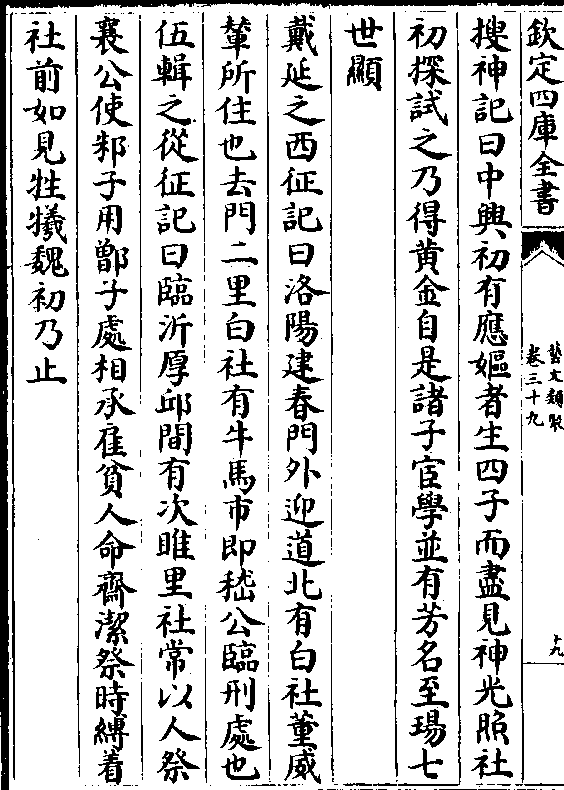 欽定四庫全書
藝文類聚
卷三十九
十九
搜神記曰中興初有應嫗者生四子而盡見神光照社
初探試之乃得黄金自是諸子宦學並有芳名至瑒七
世顯
戴延之西征記曰洛陽建春門外迎道北有白社董威
輦所住也去門二里白社有牛馬市即嵇公臨刑處也
伍輯之從征記曰臨沂厚邱間有次睢里社常以人祭
襄公使邾子用鄫子處相承雇貧人命齋潔祭時縛着
社前如見牲犧魏初乃止